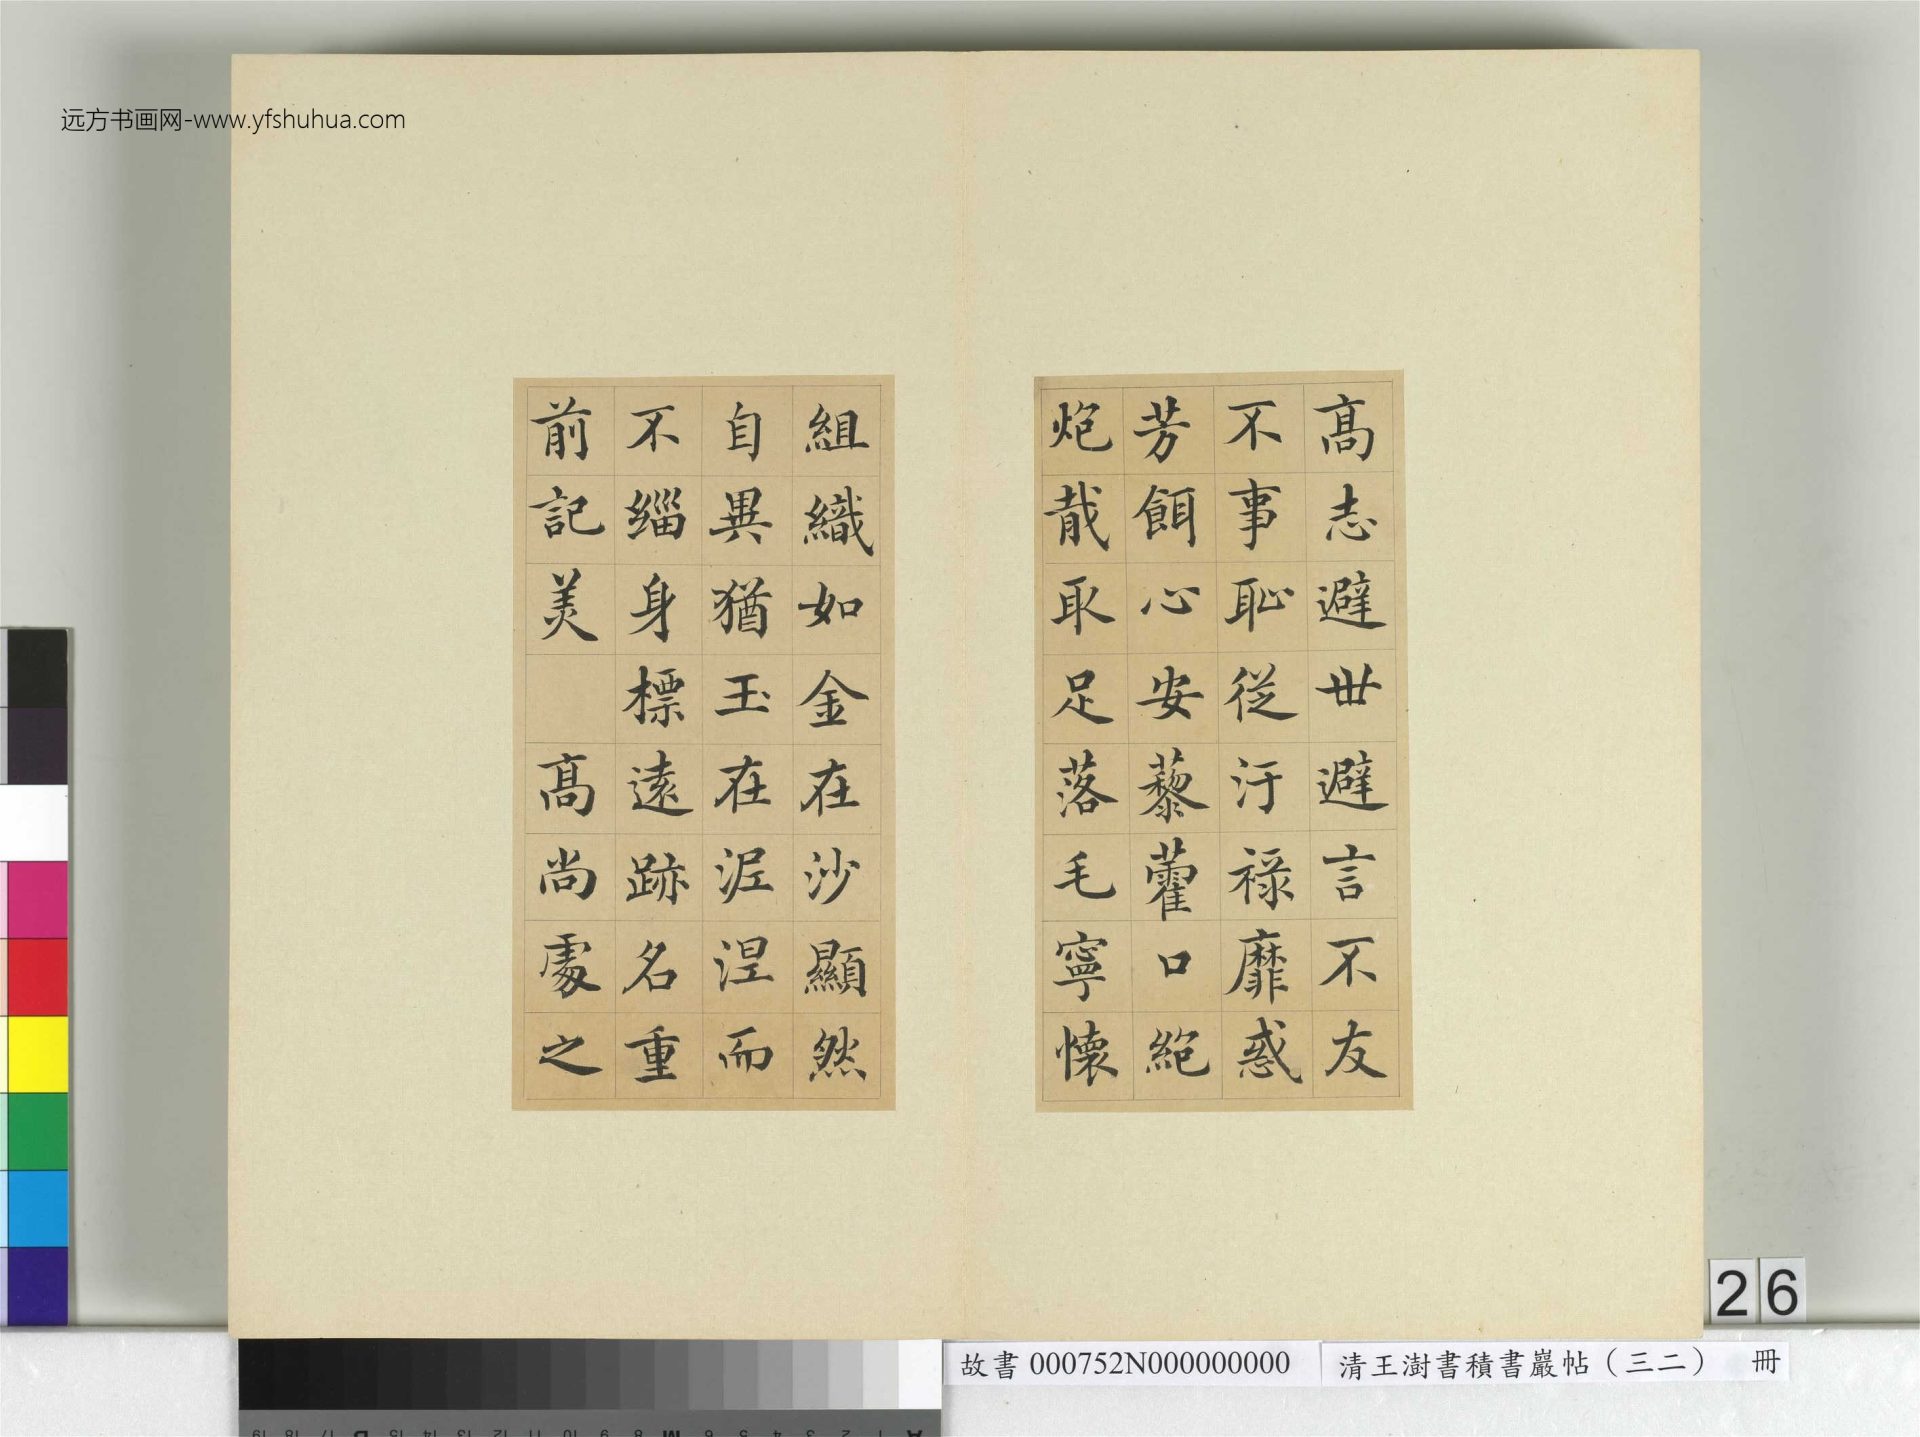 远方书画网-www.yfshuhua.com
高志避世避言不友
不事恥從汙禄靡惑
芳餌心安藜藿口絕
炮胾取足落毛寧懷
組織如金在沙顯然
自異猶玉在泥涅而
不緇身標遠跡名重
前記美 高尚處之
26
故書000752N000000000
清王澍書積書巖帖（三二） 冊